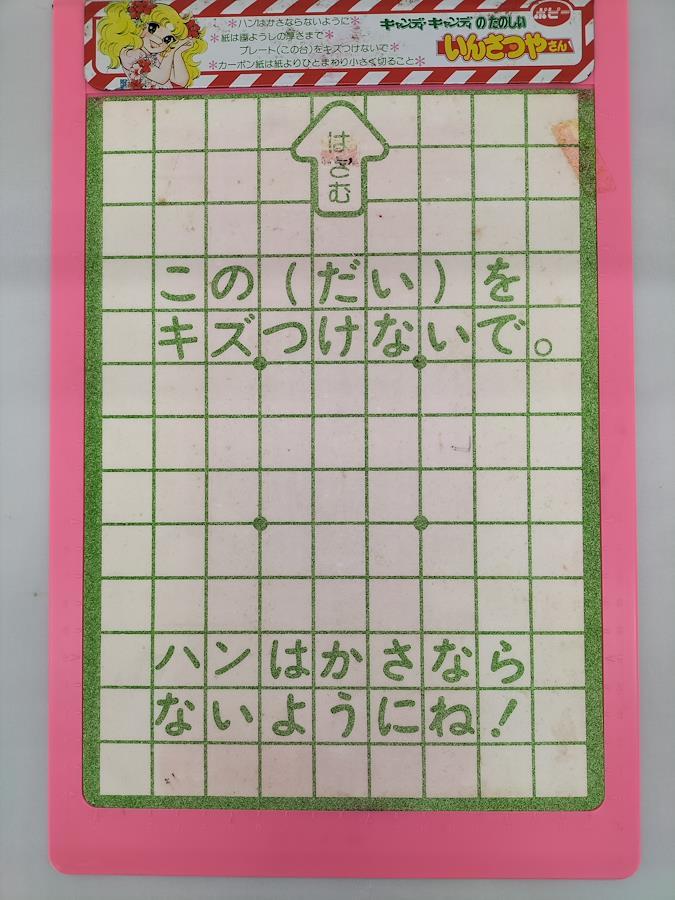 ＊ハンはかさならないように＊
＊紙は画ようしの厚さまで
プレート(この台)をキズつけないで＊
＊カーボン紙は紙よりひとまわり小さく切ること＊
キャンディ・キャンディのたのしい
いんさつやさん
ポピー
はさむ
この(だい)を
キズつけないで。
ハンはかさなら
ないようにね!